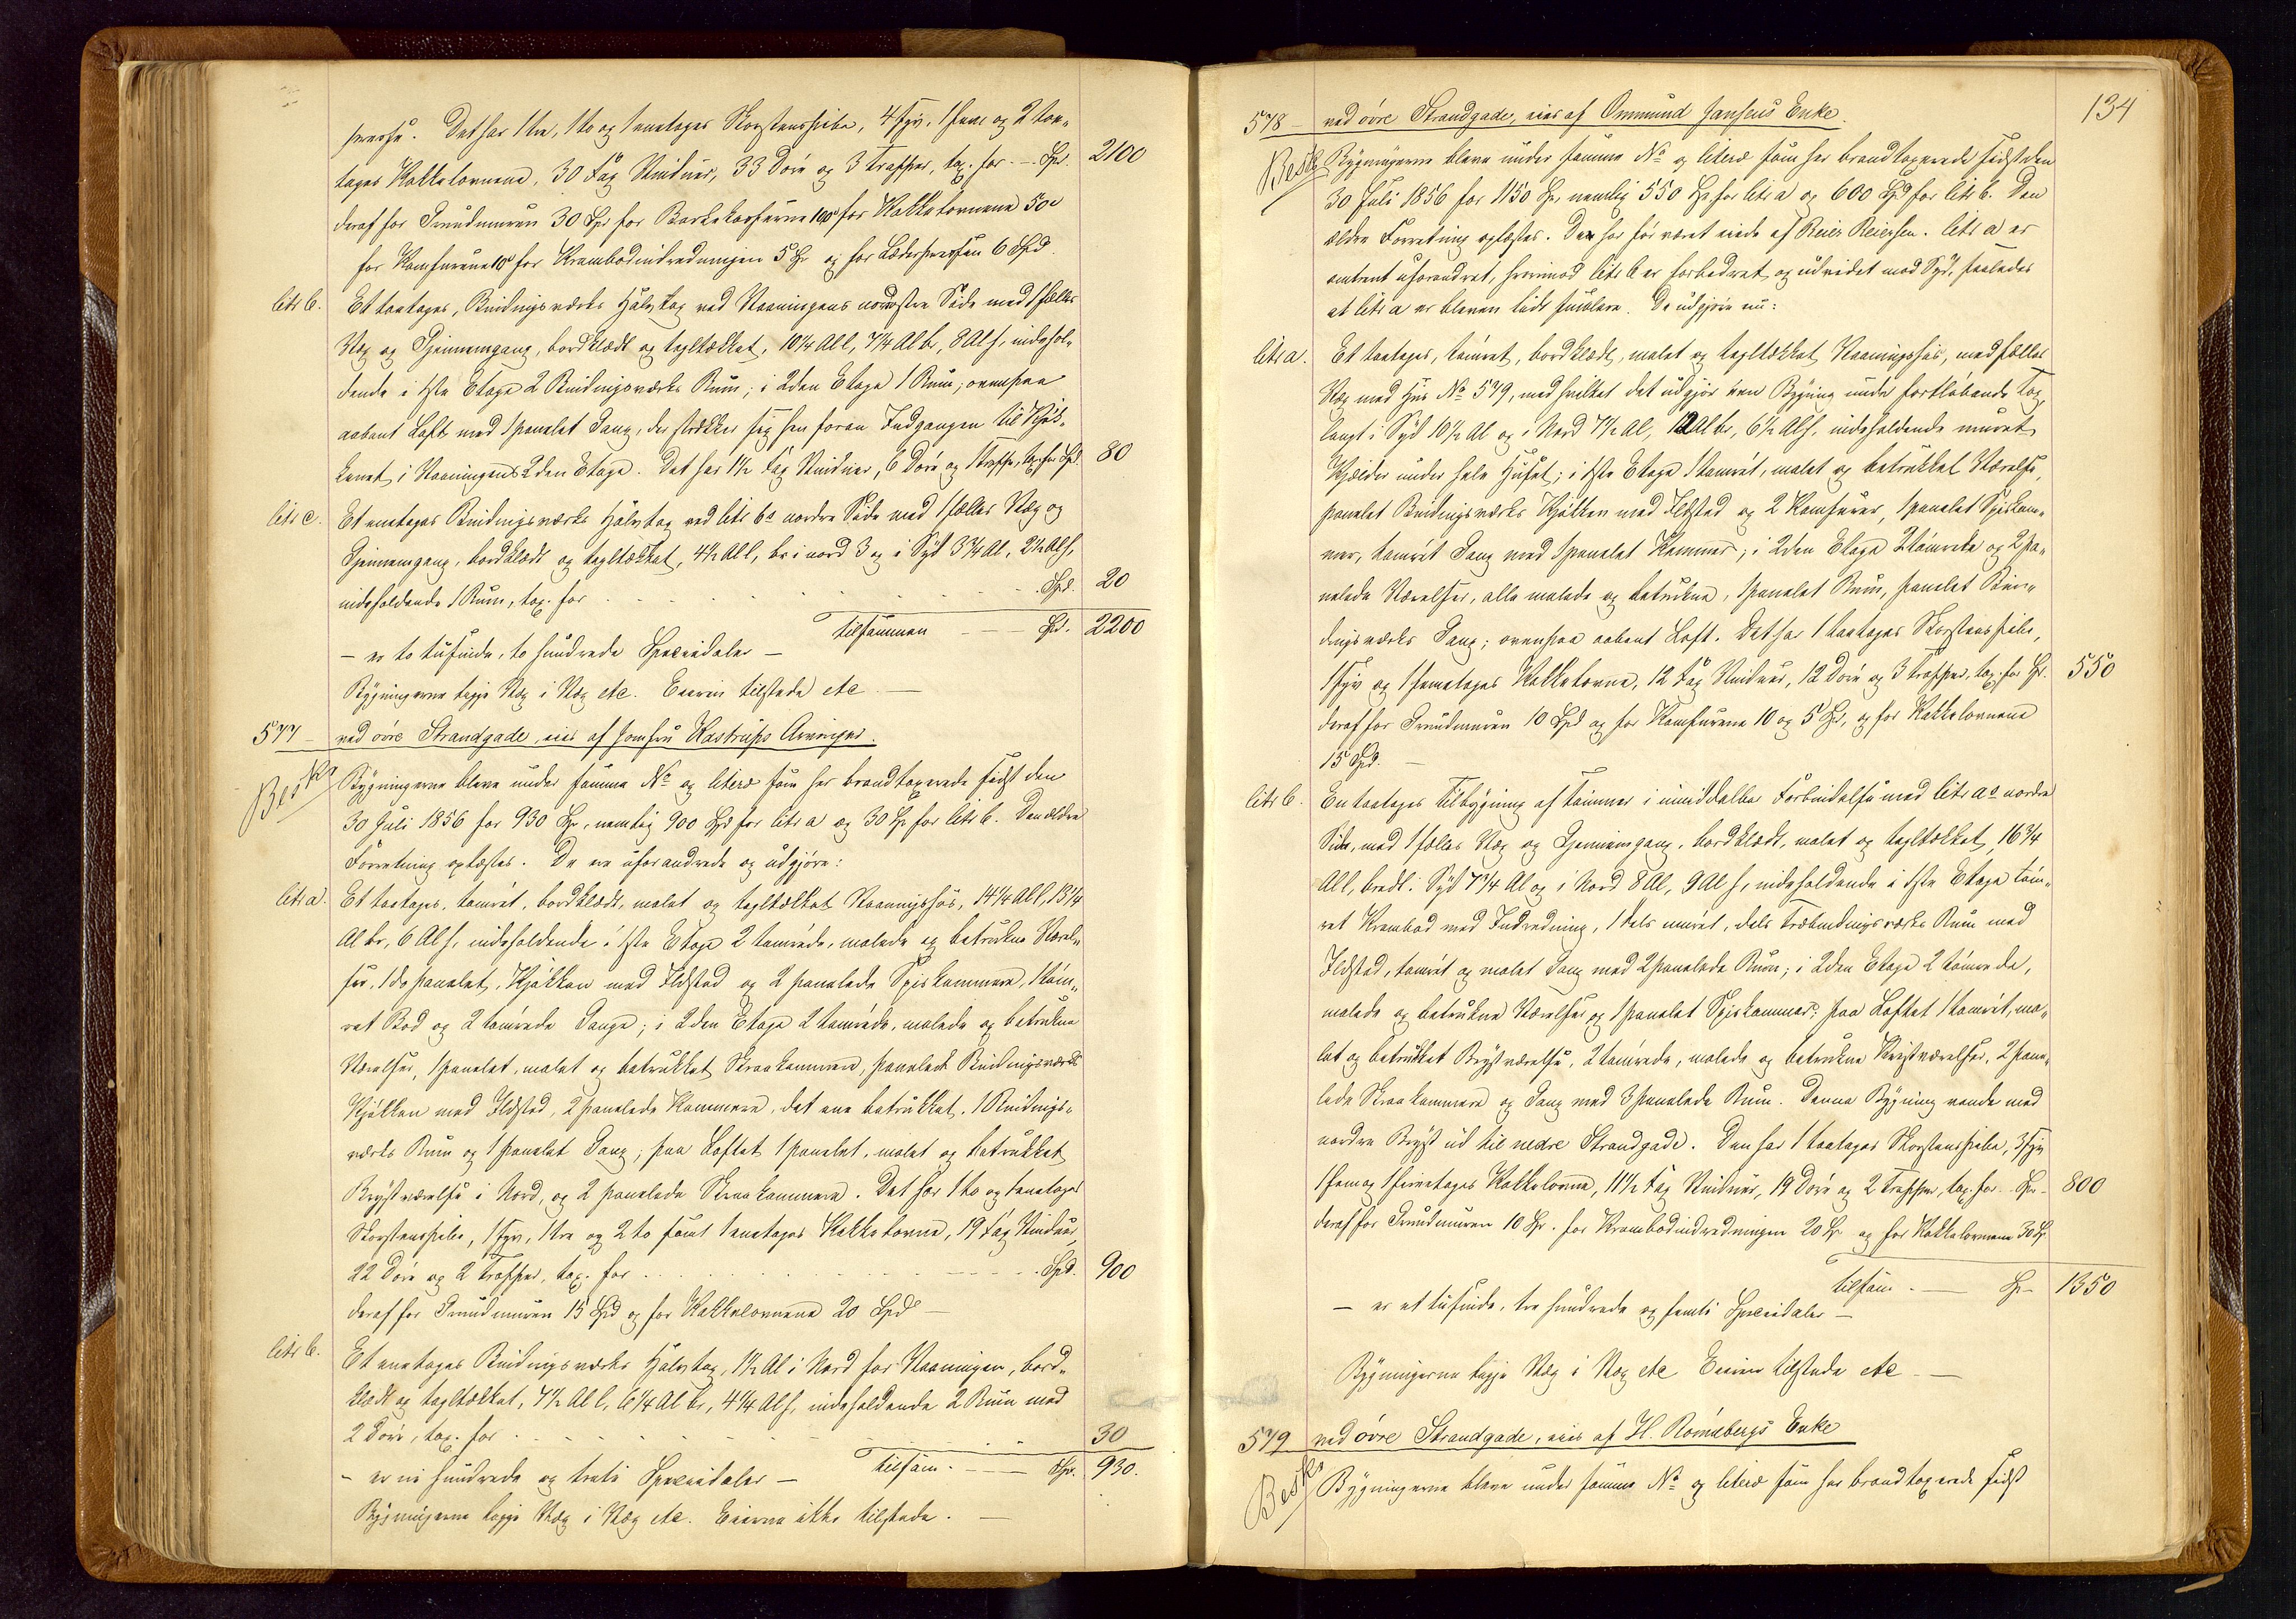 presse. Det har 1 tre, 1 to og 1 enetages Skorstenspibe, 4 fyr, 1 fem og 2 toe-
tages Kakkelovnene, 30 Fag Vinduer, 33 Döre og 3 Trapper, tax. for - Spd. 2100
deraf for Grundmuren 30 Spd for Bagerkarserne 100 for Kakkelovnene 50
for Komfurene 10 for Krambodindredningen 5 Sp og for Læderpressen 6 Spd.
litr b. Et toetages, Bindingsværks Halvtag ved Vaaningens nordøstre Side med 1 fælles
Væg og Gjennemgang, bordklædt og tegltækket, 10 1/4 Al l, 7 1/4 Al br, 8 Al h, indehol-
dende i 1ste Etage 2 Bindingsværks Rum; i 2den Etage 1 Rum; ovenpaa
aabent Loft med 1 panelet Gang, der strækker sig hen foran Indgangen til Kjök-
kenet i Vaaningens 2den Etage. Det har 1 1/2 Fag Vinduer, 6 Döre og 1 Trappe, tax. for Spd. 80
litr c. Et enetages Bindingsværks Halvtag ved litr b's nordre Side med 1 fælles Væg og
Gjennemgang, bordklædt og tegltækket, 4 1/2 Al l, br i nord 3 og i Syd 3 3/4 Al, 2 1/2 Al h,
indeholdende 1 Rum, tax. for - Spd. 20
Tilsammen - Spd. 2200
- er to tusinde, to hundrede Speciedaler -
Bygningerne ligge Væg i Væg etc. Eieren tilstede etc -
577 - ved övre Strandgade, eies af Jomfru Kastrups Arvinger.
Besk Bygningerne bleve under samme No og literæ som her brandtaxerede sidst den
30 Juli 1856 for 930 Sp, nemlig 900 Spd for litr a og 30 Sp for litr b. Den ældre
Forretning oplæstes. De ere uforandrede og udgjöre:
litr a. Et toetages, tömret, bordklædt, malet og tegltækket Vaaningshus, 14 1/4 Al l, 13 1/4
Al br, 6 Al h, indeholdende i 1ste Etage 2 tömrede, malede og betrukne Værel-
ser, 1 do panelet, Kjökken med Ildsted og 2 panelede Spiskammere, 1 töm-
ret Bod og 2 tömrede Gange; i 2den Etage 2 tömrede, malede og betrukne
Værelser, 1 panelet, malet og betrukket Skraakammer, panelet Bindingsværks
Kjökken med Ildsted, 2 panelede Kammere, det ene betrukket, 1 Bindings-
værks Rum og 1 panelet Gang; paa Loftet 1 panelet, malet og betrukket
Brystværelse i Nord, og 2 panelede Skraakammere. Det har 1 to og 1 enetages
Skorstenspibe, 1 fyr, 1 tre og 2 to samt 1 enetages Kakkelovne, 19 Fag Vinduer,
22 Döre og 2 Trapper, tax. for - Spd. 900
deraf for Grundmuren 15 Spd og for Kakkelovnene 20 Spd -
litr b. Et enetages Bindingsværks Halvtag, 1 1/2 Al i Nord for Vaaningen, bord-
klædt og tegltækket, 7 1/2 Al l, 6 1/4 Al br, 4 1/4 Al h, indeholdende 2 Rum med
2 Döre, tax. for - 30
Tilsam. - Spd. 930.
- er ni hundrede og treti Speciedaler -
Bygningerne ligge Væg i Væg etc. Eierne ikke tilstede. -
134
578 - ved övre Strandgade, eies af Ommund Hansens Enke
Besk Bygningerne bleve under samme No og literæ som her brandtaxerede sidst den
30 Juli 1856 for 1150 Sp, nemlig 550 Sp for litr a og 600 Spd for litr b. Den
ældre Forretning oplæstes. Den har för været eiede af Reier Reiersen. litr a er
omtrent uforandret, hvorimod litr b er forbedret og udvidet mod Syd, saaledes
at litr a er bleven lidt smalere. De udgjöre nu:
litr a. Et toetages, tömret, bordklædt, malet og tegltækket Vaaningshus, med fælles
Væg med Hus No 579, med hvilket det udgjör een Bygning under fortlöbende Tag,
langt i Syd 10 1/2 Al og i Nord 7 1/2 Al, 12 Al br, 6 1/2 Al h, indeholdende muret
Kjælder under hele Huset; i 1ste Etage 1 tömret, malet og betrukket Værelse,
panelet Bindingsværks Kjökken med Ildsted og 2 Komfurer, 1 panelet Spiskam-
mer, tömret Gang med 1 panelet Kammer; i 2den Etage 2 tömrede og 2 pa-
nelede Værelser, alle malede og betrukne, 1 panelet Rum, panelet Bin-
dingsværks Gang; ovenpaa aabent Loft. Det har 1 toetages Skorstenspibe,
1 fyr og 1 femetages Kakkelovne, 12 Fag Vinduer, 12 Döre og 3 Trapper, tax. for Sp. 550
deraf for Grundmuren 10 Spd og for Komfurene 10 og 5 Sp, og for Kakkelovnene
15 Spd. -
litr b. En toetages Tilbygning af Tömmer i umiddelbar Forbindelse med litr a's nordre
Side, med 1 fælles Væg og Gjennemgang, bordklædt, malet og tegltækket, 16 3/4
Al l, bredt i Syd 7 3/4 Al og i Nord 8 Al, 9 Al h, indeholdende i 1ste Etage töm-
ret Krambod med Indredning, 1 dels muret, dels Træbindingsværks Rum med
Ildsted, tömret og malet Gang med 2 panelede Rum; i 2den Etage 2 tömrede,
malede og betrukne Værelser og 1 panelet Spiskammer; paa Loftet 1 tömret, ma-
let og betrukket Brystværelse, 2 tömrede, malede og betrukne Kvistværelser, 2 pane-
lede Skraakammere og Gang med 3 panelede Rum. Denne Bygning vender med
nordre Bryst ud til nedre Strandgade. Den har 1 toetages Skorstenspibe, 3 fyr
1 fem og 1 fireetages Kakkelovne, 11 1/2 Fag Vinduer, 19 Döre og 2 Trapper, tax. for - Sp - 800
deraf for Grundmuren 10 Sp. for Krambodindredningen 20 Sp og for Kakkelovnene 30 Sp
Tilsam. - Sp - 1350
- er et tusinde, tre hundrede og femti Speciedaler -
Bygningerne ligge Væg i Væg etc Eieren tilstede etc -
579 ved övre Strandgade, eies af H. Römebergs Enke
Besk Bygningerne bleve under samme No og literæ som her brandtaxerede sidst